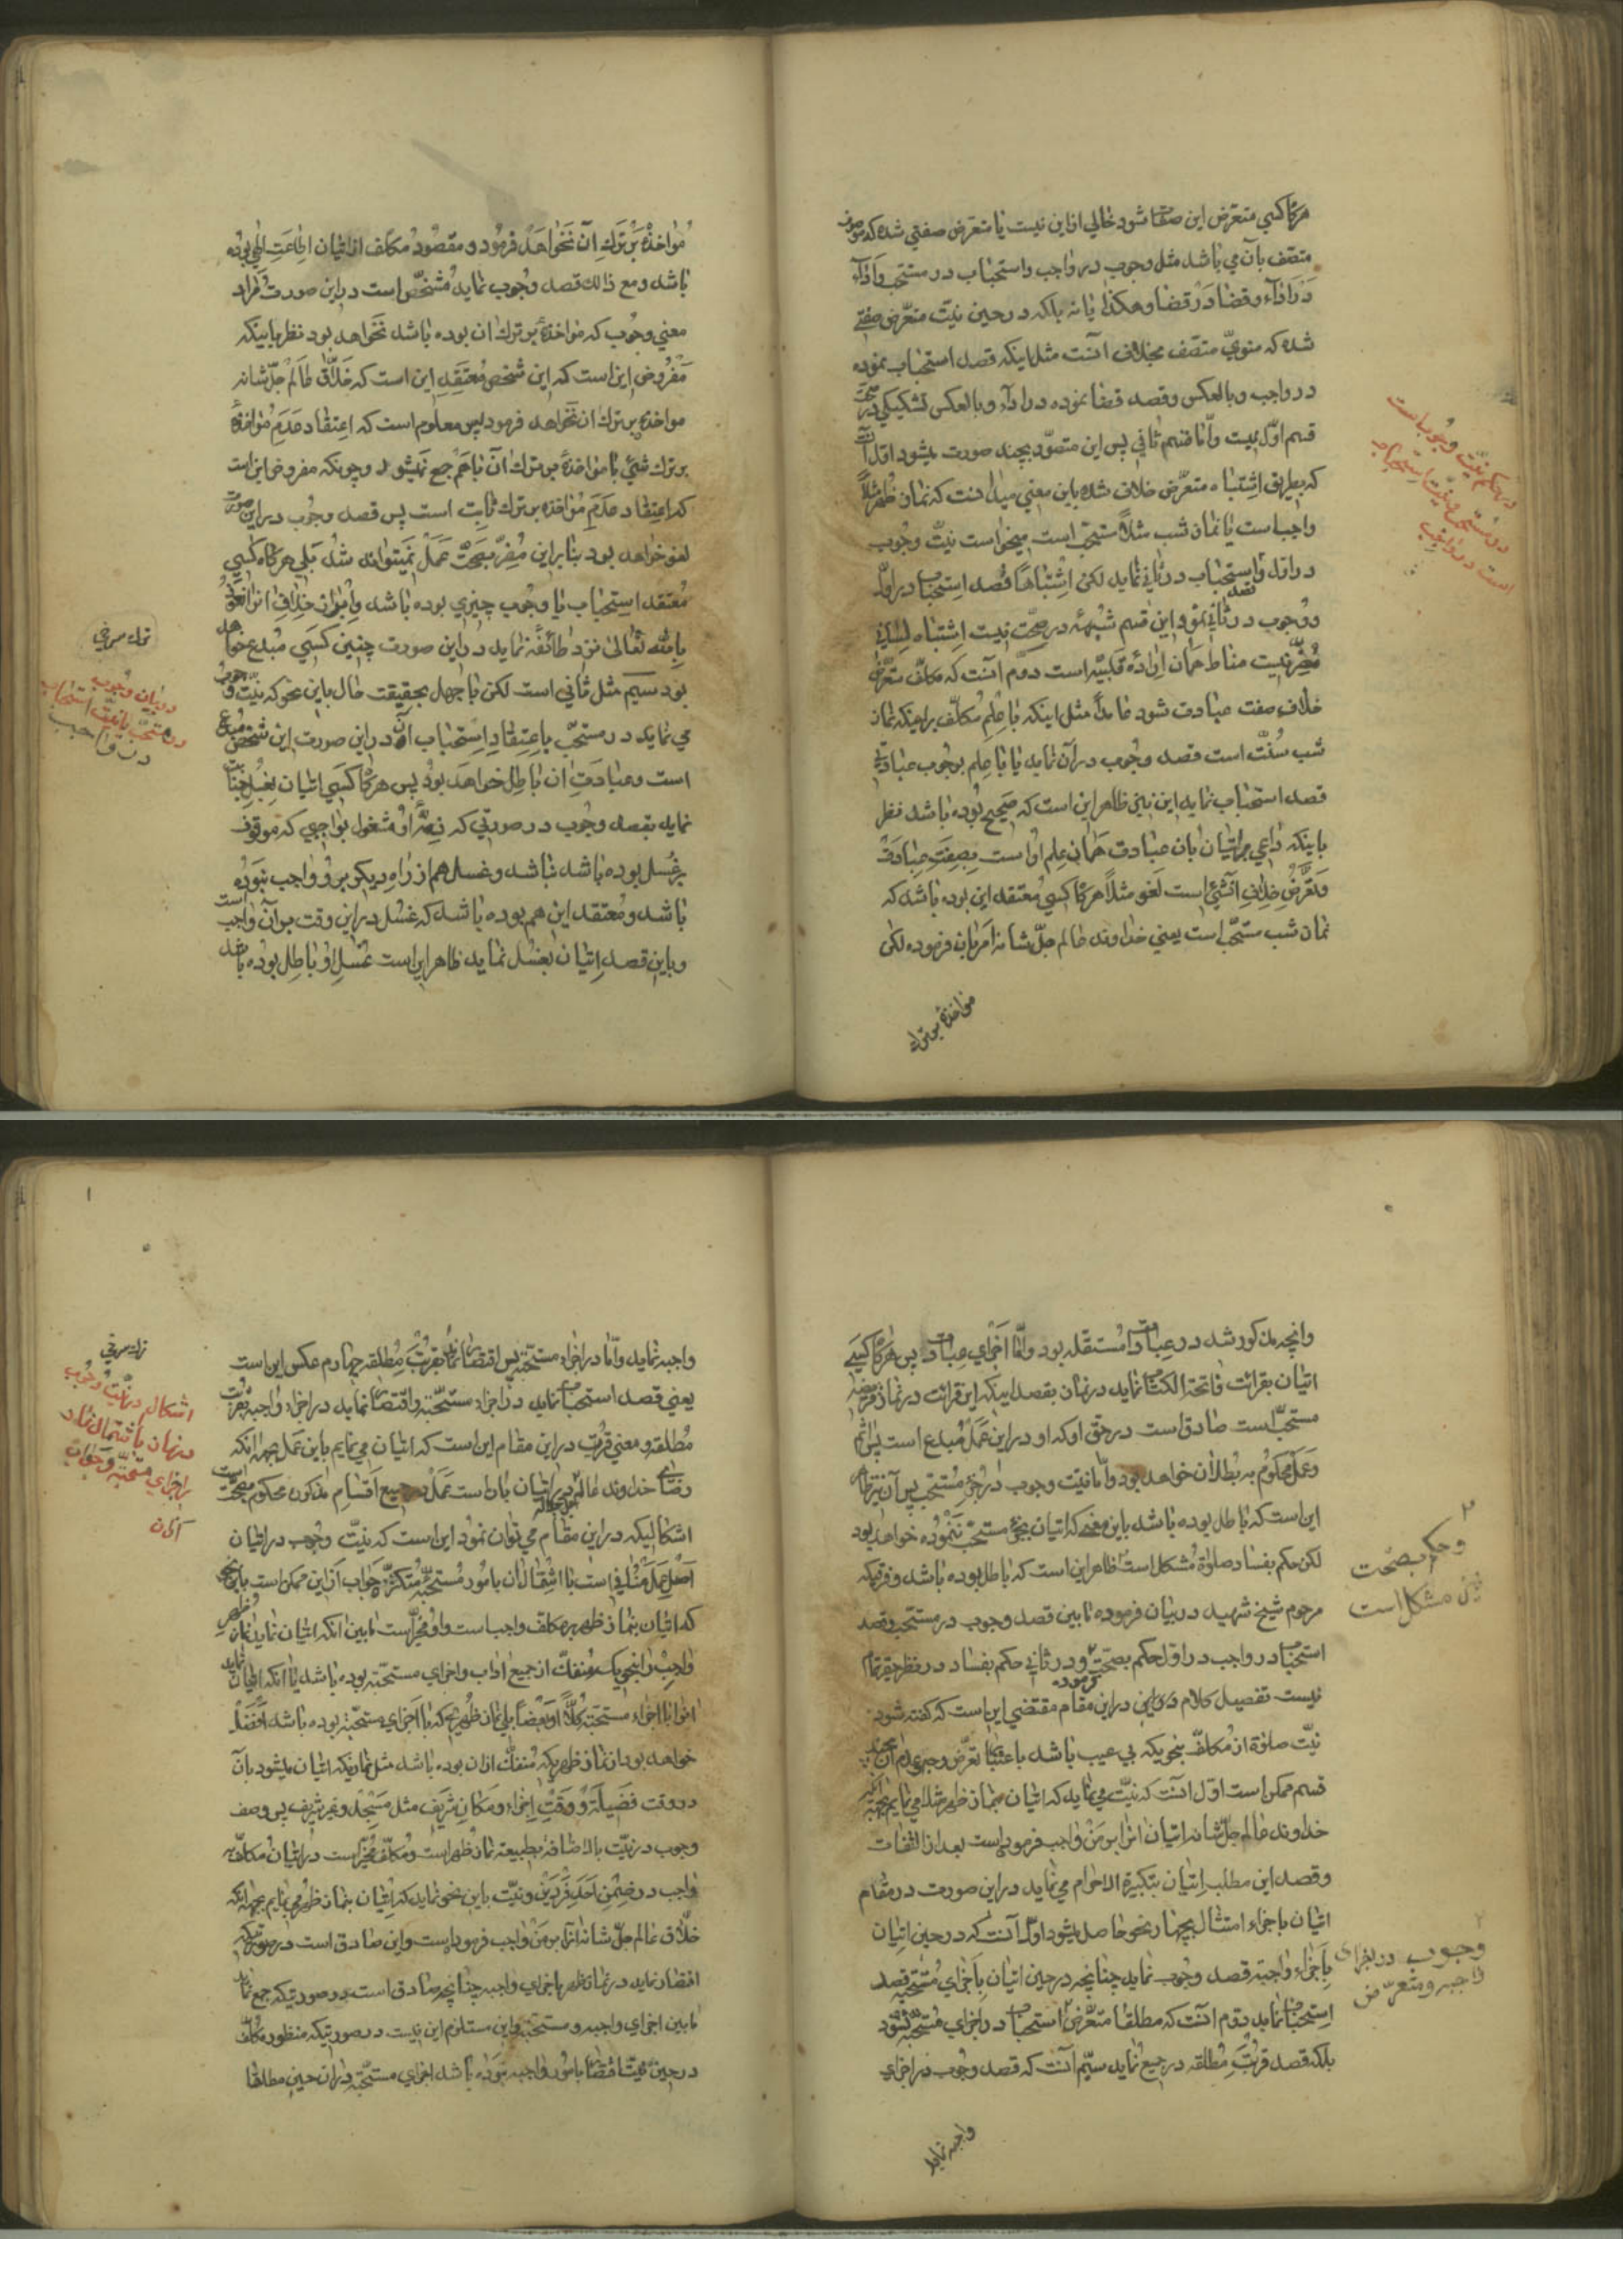 هرگاه کسی متعرض این صفتها شود خالی از این نیست یا متعرض صفتی شده که موصوف
متصف بآن می باشد مثل وجوب در واجب و استحباب در مستحب و اداء
در اداء و قضا در قضا و هکذا یا نه بلکه در حین نیت متعرض صفتی
شده که منوی متصف بخلاف آنست مثل اینکه قصد استحباب نموده
در واجب و بالعکس و قصد قضا نموده در اداء و بالعکس تشکیکی در صحت
قسم اول نیست و اما قسم ثانی پس این متصور بچند صورت میشود اول آنست
که بطریق اشتباه متعرض خلاف شده باین معنی میدانست که نماز ظهر مثلاً
واجب است یا نماز شب مثلاً مستحب است میخواست نیت وجوب
در اول و استحباب در ثانی نماید لکن اشتباهاً قصد استحباب در اول
و وجوب در ثانی نموده این قسم شبهه در صحت نیست اشتباه لسانی
مضر نیست مناط همان اراده قلبیه است دوم آنست که مکلف متعرض
خلاف صفت عبادت شود عامداً مثل اینکه با علم مکلف بر اینکه نماز
شب سنت است قصد وجوب در آن نماید یا با علم بوجوب عبادتی
قصد استحباب نماید این نیز ظاهر این است که صحیح بوده باشد نظر
باینکه داعی بر اتیان بان عبادت همان علم او است بصفت عبادت
و تعرض خلاف آنشیء است لغو مثلاً هرگاه کسی معتقد این بوده باشد که
نماز شب مستحب است یعنی خداوند عالم جل شانه امر بان فرموده لکن
مواخذه بر ترك
در حکم نیت وجوب است
در مستحب و نیت استحباب
است در واجب
مؤاخذه بر ترك آن نخواهد فرمود و مقصود مکلف از اتیان اطاعت الهی بوده
باشد و مع ذالك قصد وجوب نماید مشخص است در این صورت مراد
معنی وجوب که مواخذه بر ترك ان بوده باشد نخواهد بود نظر باینکه
مفروض این است که این شخص معتقد این است که خلاق عالم جل شانه
مواخذه بر ترك ان نخواهد فرمود پس معلوم است که اعتقاد عدم مؤاخذه
بر ترك شیء با مواخذه بر ترك آن با هم جمع نمیشود و چونکه مفروض این است
که اعتقاد عدم مؤاخذه بر ترك ثابت است پس قصد وجوب در این صورت
لغو خواهد بود بنا بر این مضر بصحت عمل نمیتواند شد بلی هرگاه کسی
معتقد استحباب یا وجوب چیزی بوده باشد و ابراز خلاف انرا نعوذ
بالله تعالی نزد طائفه نماید در این صورت چنین کسی مبدع خواهد
بود سیم مثل ثانی است لکن با جهل بحقیقت حال باین نحو که نیت وجوب
می نماید در مستحب باعتقاد استحباب آن در این صورت این شخص مبدع
است و عبادت ان باطل خواهد بود پس هرگاه کسی اتیان بغسل جنابت
نماید بقصد وجوب در صورتی که ذمه او مشغول بواجبی که موقوف
بر غسل بوده باشد نباشد و غسل هم از راه دیگر بر او واجب نبوده
باشد و معتقد این هم بوده باشد که غسل در این وقت بر آن واجب است
و باین قصد اتیان بغسل نماید ظاهر این است غسل او باطل بوده باشد
در بیان وجوب
در مستحب یا نیت استحباب
در واجب
وانچه مذکور شد در عبادات مستقله بود و اما اجزای عبادات پس هرگاه کسی
اتیان بقرائت فاتحة الکتاب نماید در نماز بقصد اینکه این قرائت در نماز فریضه
مستحب است صادق است در حق او که او در این عمل مبدع است پس اثم
و عمل محکوم به بطلان خواهد بود و اما نیت وجوب در جزء مستحب پس آن نیز ظاهر
این است که باطل بوده باشد باین معنی که اتیان بجزء مستحب ننموده خواهد بود
لکن حکم بفساد صلوة مشکل است ظاهر این است که باطل بوده باشد و فرقیکه
مرحوم شیخ شهید در بیان فرموده مابین قصد وجوب در مستحب و قصد
استحباب در واجب در اول حکم بصحت فرموده و در ثانی حکم بفساد در نظر حقیر تمام
نیست تفصیل کلام در این مقام مقتضی این است که گفته شود
نیت صلوة از مکلف بنحویکه بی عیب باشد باعتبار تعرض وجه و عدم آن بچند
قسم ممکن است اول آنست که نیت می نماید که اتیان بنماز ظهر مثلاً می نمایم بجهة آنکه
خداوند عالم جل شانه اتیان انرا بر من واجب فرموده است بعد از التفات
و قصد این مطلب اتیان بتکبیرة الاحرام می نماید در این صورت در مقام
اتیان باجزاء امتثال بچهار نحو حاصل میشود اول آنست که در حین اتیان
باجزاء واجبه قصد وجوب نماید چنانچه در حین اتیان باجزای مستحبه قصد
استحباب نماید دوم آنست که مطلقا متعرض استحباب در اجزای مستحبه نشود
بلکه قصد قربت مطلقه در جمیع نماید سیم آنست که قصد وجوب در اجزای
واجبه نماید
و حکم بصحت
نیز مشکل است
وجوب در اجزای
واجبه و متعرض
واجبه نماید و اما در اجزاء مستحبه پس اقتصار نماید بقربت مطلقه چهارم عکس این است
یعنی قصد استحباب نماید در اجزاء مستحبه و اقتصار نماید در اجزاء واجبه بقربت
مطلقه و معنی قربت در این مقام این است که اتیان می نمایم باین عمل بجهة آنکه
رضای خداوند عالم جل جلاله در اتیان بان است عمل در جمیع اقسام مذکور محکوم بصحت است
اشکالیکه در این مقام می توان نمود این است که نیت وجوب در اتیان
اصل عمل منافی است با اشتمال ان بامور مستحبه متکثره جواب از این ممکن است باین نحو
که اتیان بنماز ظهر بر مکلف واجب است و او مخیر است مابین آنکه اتیان نماید بنماز ظهر
واجب را بنحویکه منفك از جمیع اداب و اجزای مستحبه بوده باشد یا آنکه اتیان نماید
انرا با اجزاء مستحبه کلاً او بعضاً بلی نماز ظهریکه با اجزای مستحبه بوده باشد افضل
خواهد بود از نماز ظهریکه منفك ازان بوده باشد مثل نمازیکه اتیان میشود بآن
در وقت فضیلة و وقت اجزاء و مکان شریف مثل مسجد و غیر شریف پس وصف
وجوب در نیت بالاضافه بطبیعة نماز ظهر است و مکلف مخیر است در اتیان مکلف به
واجب در ضمن احد فردین و نیت باین نحو نماید که اتیان بنماز ظهر می نمایم بجهة آنکه
خلاق عالم جل شانه انرا بر من واجب فرموده است و این صادق است در صورتیکه
اقتصار نماید در نماز ظهر باجزای واجبه چنانچه صادق است در صورتیکه جمع نماید
مابین اجزای واجبه و مستحبه و این مستلزم این نیست در صورتیکه منظور مکلف
در حین نیت اقتصار بامور واجبه بوده باشد اجزای مستحبه در ان حین مطلقا
اشکال در نیت وجوب
در نماز با اشتمال نماز
بر اجزای مستحبه و جواب
از آن